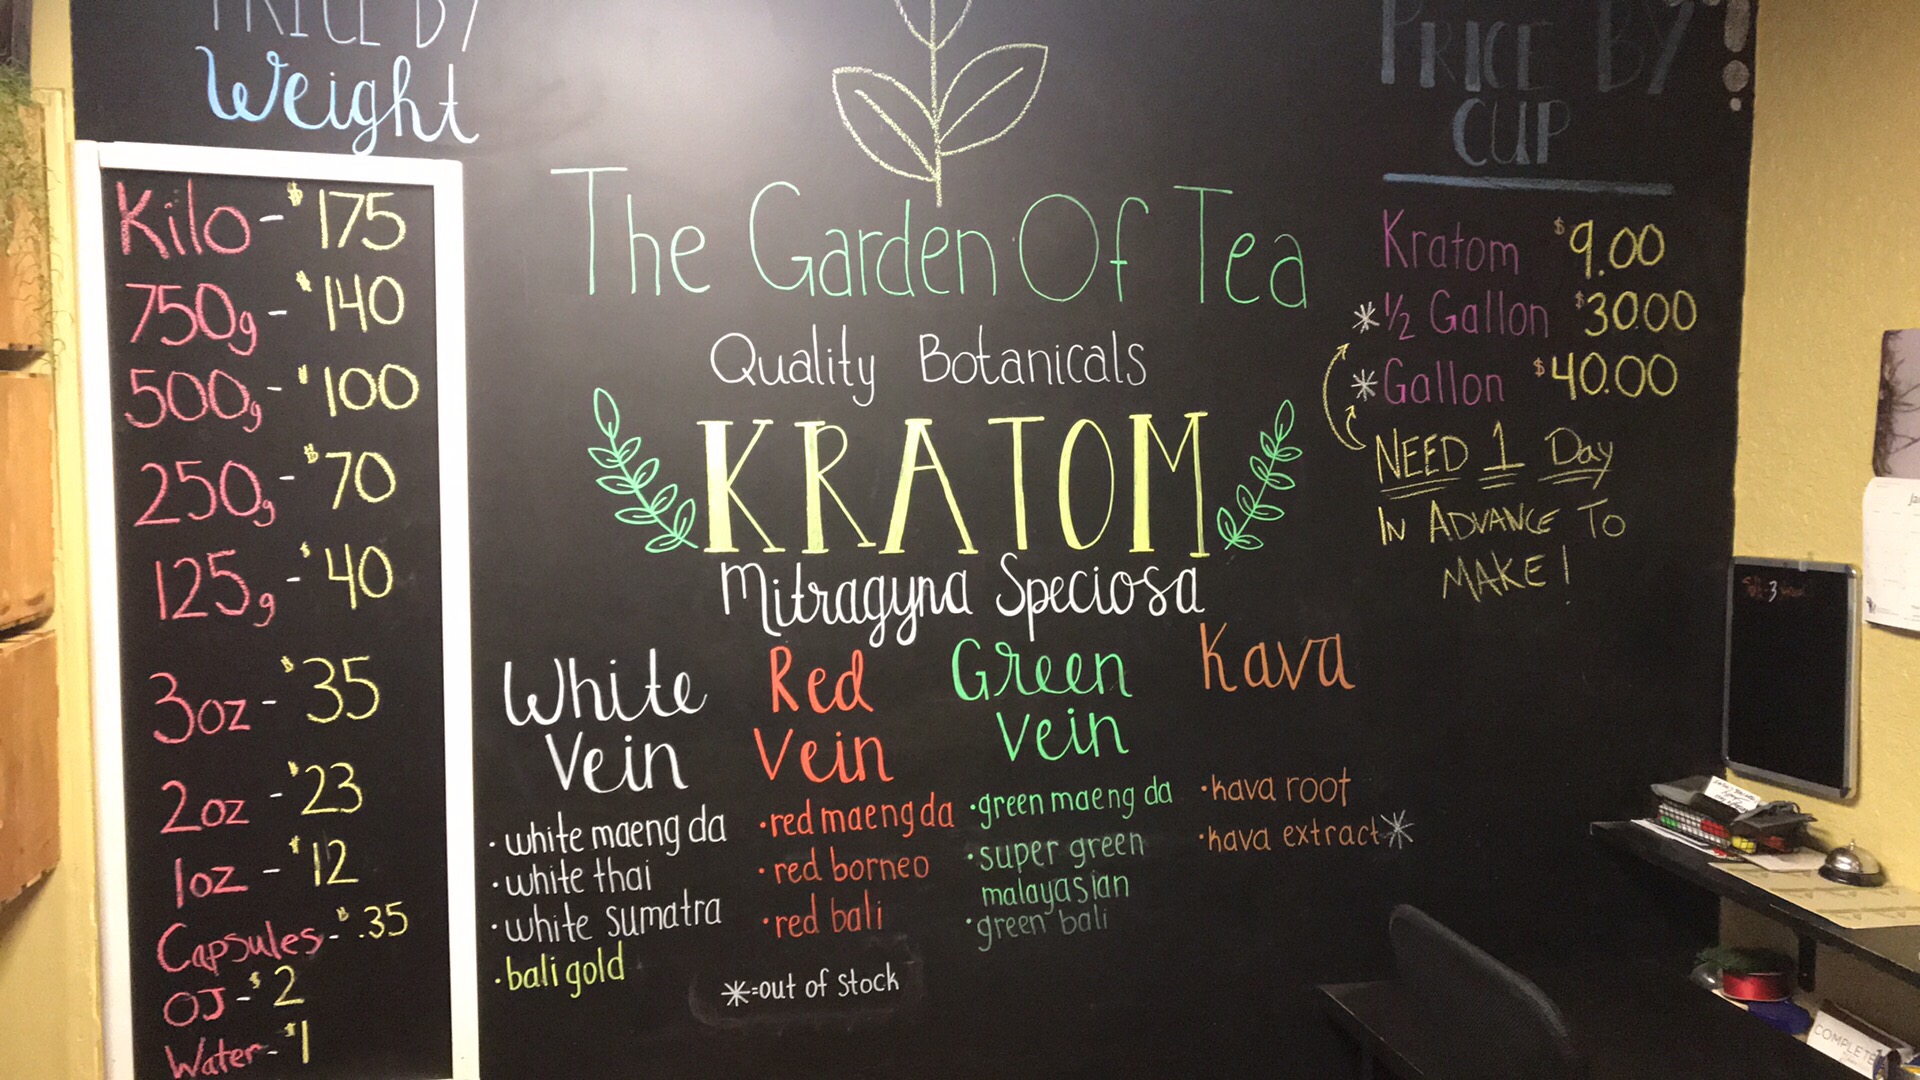 PRICE BY
Weight
Kilo - $175
750g - $140
500g - $100
250g - $70
125g - $40
3oz - $35
2oz - $23
1oz - $12
Capsules - $.35
OJ - $2
Water - $1
The Garden Of Tea
Quality Botanicals
KRATOM
Mitragyna Speciosa
White
Vein
• white maeng da
• white thai
• white sumatra
• bali gold
Red
Vein
• red maeng da
• red borneo
• red bali
Green
Vein
• green maeng da
• super green
malayasian
• green bali
Kava
• kava root
• kava extract*
*=out of stock
PRICE BY
CUP
Kratom $9.00
*1/2 Gallon $30.00
*Gallon $40.00
NEED 1 Day
IN ADVANCE TO
MAKE!
COMPLETE